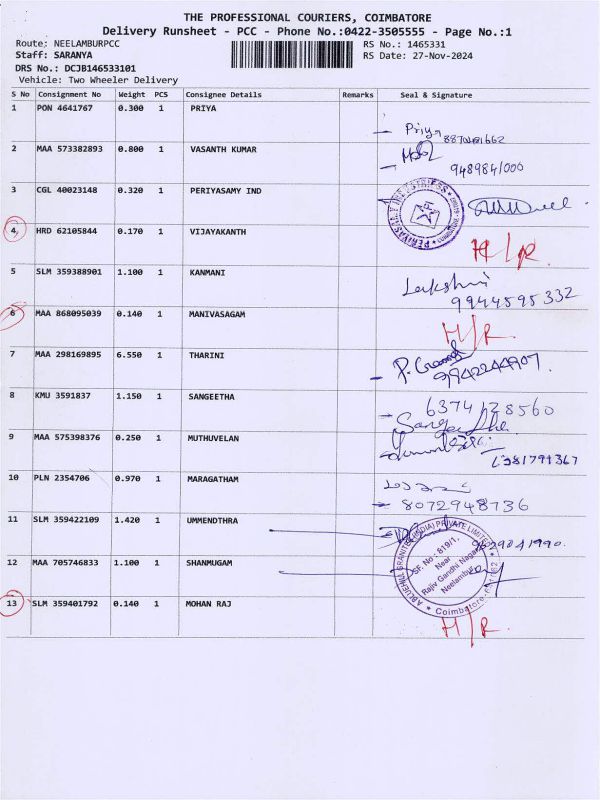 THE PROFESSIONAL COURIERS, COIMBATORE
Delivery Runsheet - PCC - Phone No.:0422-3505555 - Page No.:1
Route: NEELAMBURPCC RS No.: 1465331
Staff: SARANYA RS Date: 27-Nov-2024
DRS No.: DCJB146533101
Vehicle: Two Wheeler Delivery
S No Consignment No Weight PCS Consignee Details Remarks Seal & Signature
1 PON 4641767 0.300 1 PRIYA
Priya
2 MAA 573382893 0.800 1 VASANTH KUMAR
3 CGL 40023148 0.320 1 PERIYASAMY IND
4 HRD 62105844 0.170 1 VIJAYAKANTH H/R
5 SLM 359388901 1.100 1 KANMANI
Lakshmi
9944595332
6 MAA 868095039 0.140 1 MANIVASAGAM H/R
7 MAA 298169895 6.550 1 THARINI
9942244907
8 KMU 3591837 1.150 1 SANGEETHA
6374128560
9 MAA 575398376 0.250 1 MUTHUVELAN
10 PLN 2354706 0.970 1 MARAGATHAM
8072948736
11 SLM 359422109 1.420 1 UMMENDTHRA
12 MAA 705746833 1.100 1 SHANMUGAM
BLUEHILL GRANITE (INDIA) PRIVATE LIMITED
SF. No : 619/1.
Near
Rajiv Gandhi Nagar
Neelambur
Coimbatore
13 SLM 359401792 0.140 1 MOHAN RAJ H/R